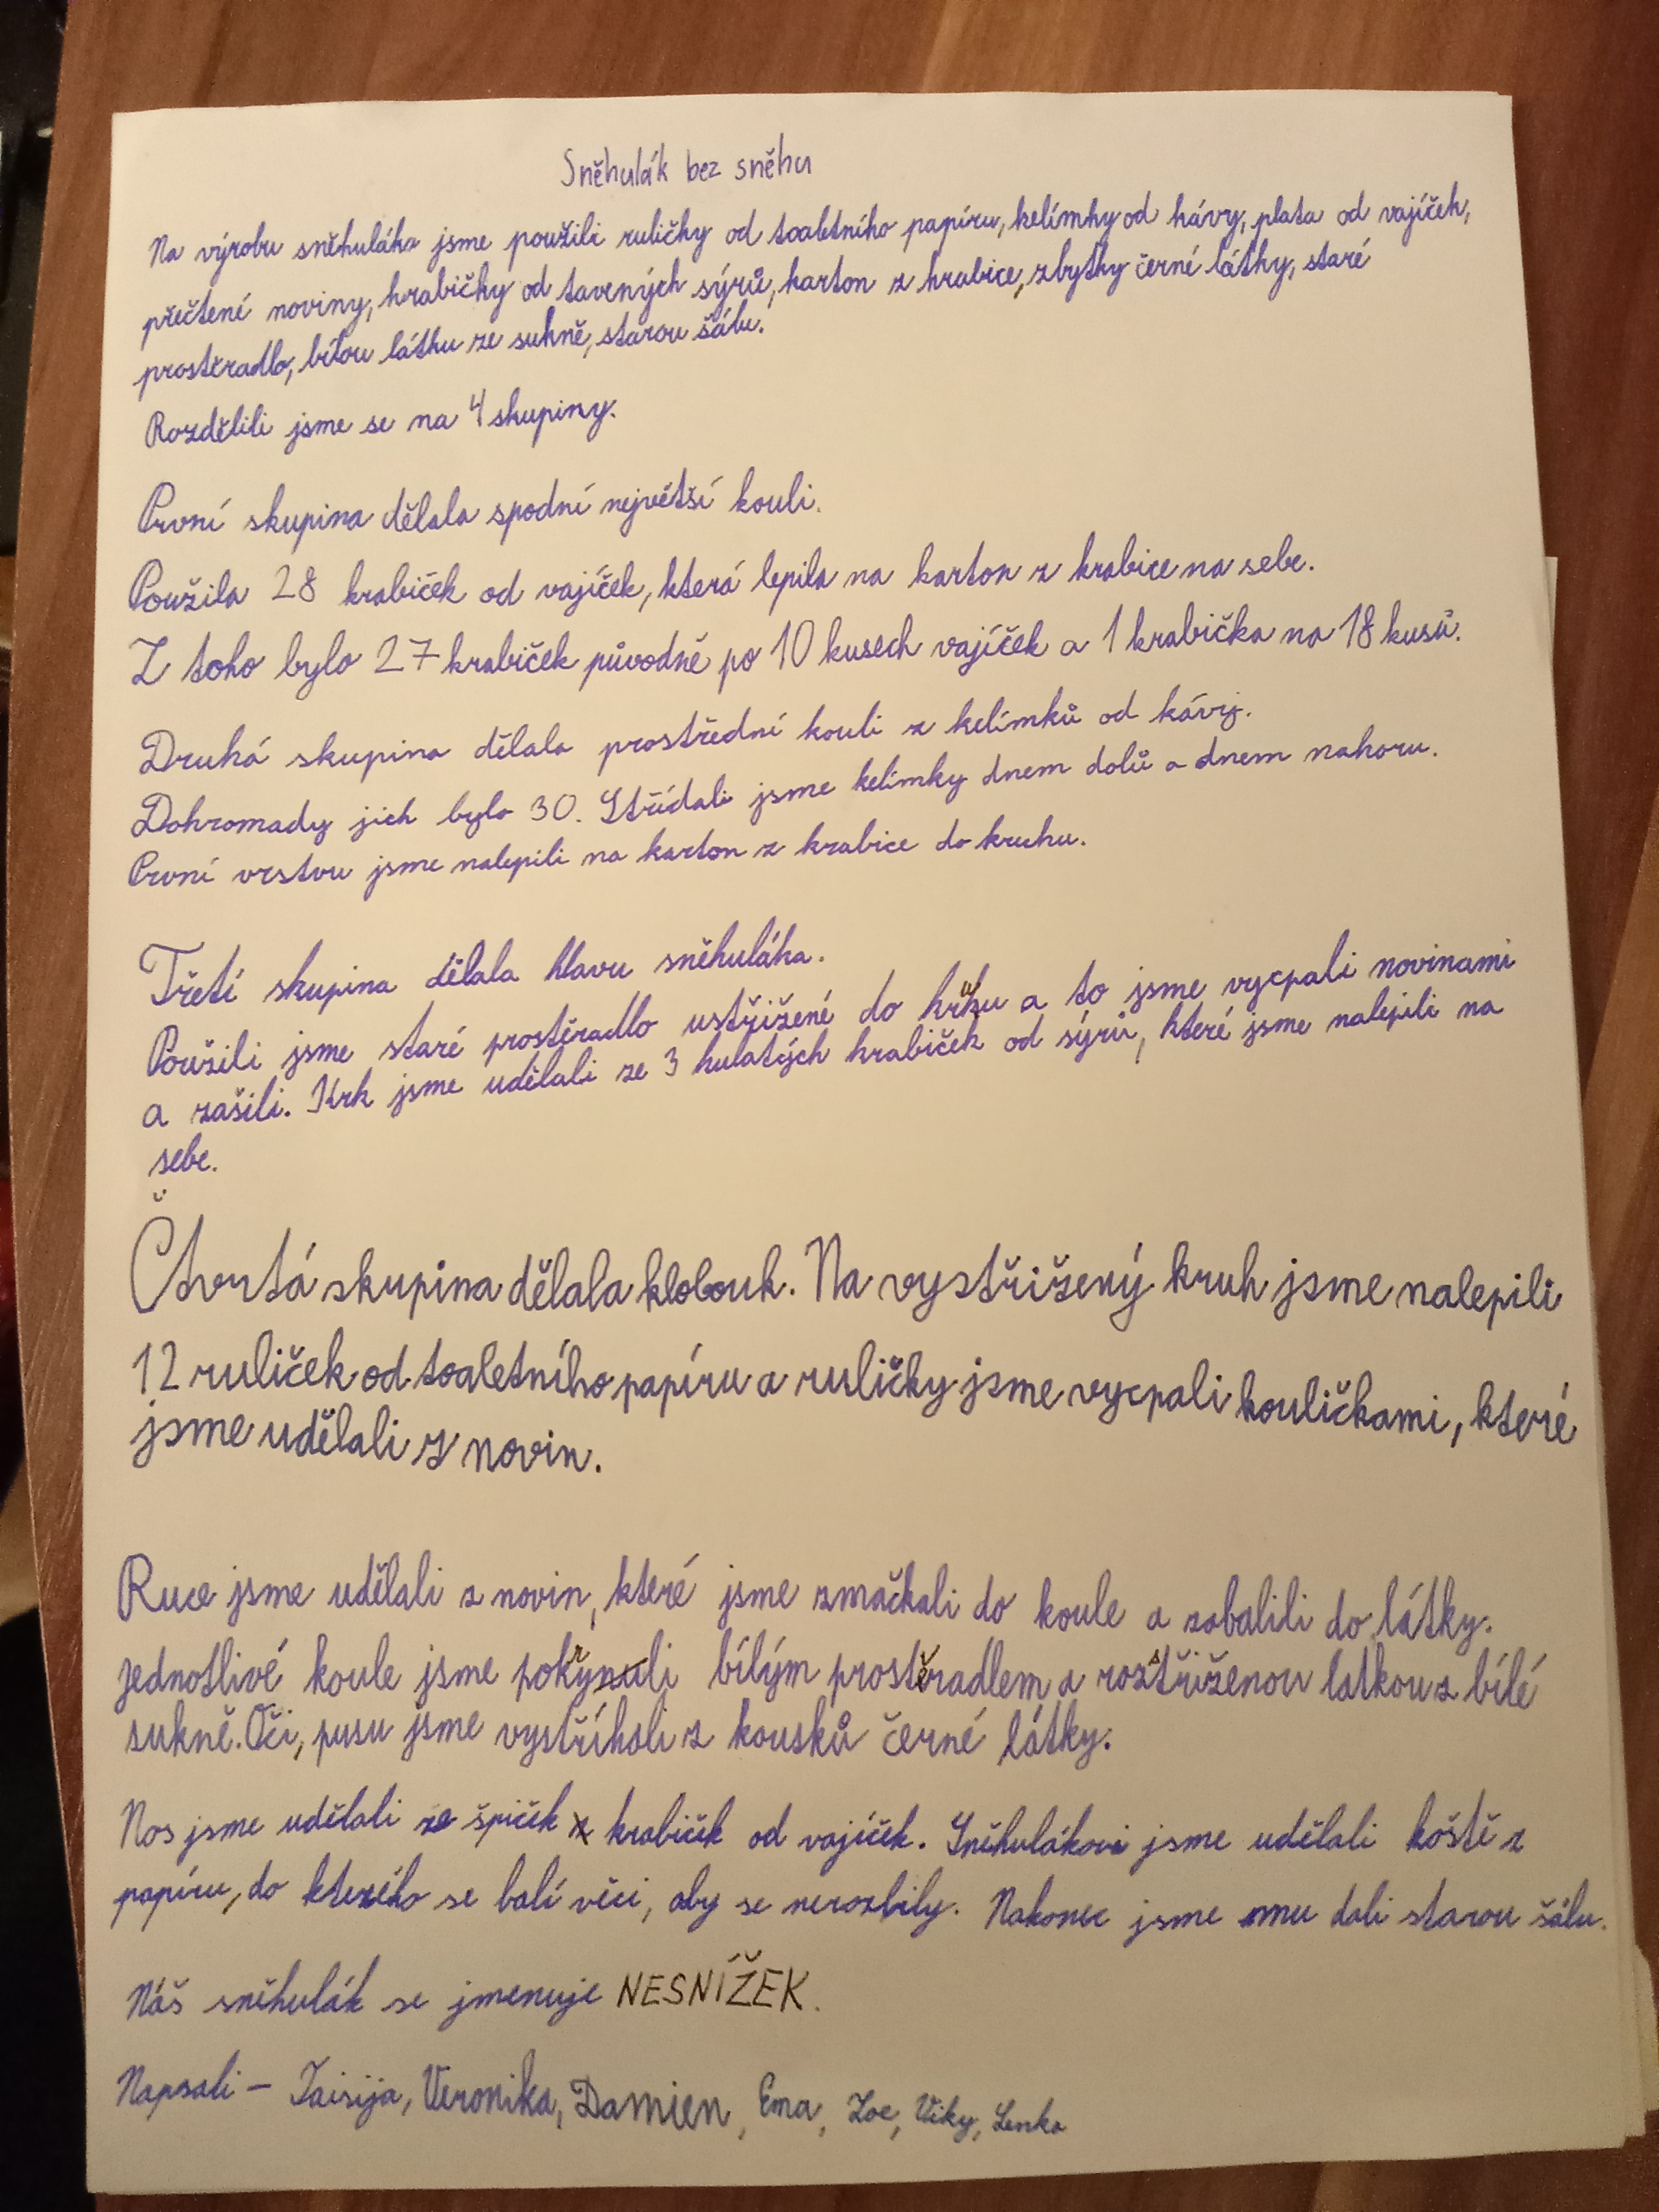 Sněhulák bez sněhu
Na výrobu sněhuláka jsme použili ruličky od toaletního papíru, kelímky od kávy, plata od vajíček,
přečtené noviny, krabičky od tavených sýrů, karton z krabice, zbytky černé látky, staré
prostěradlo, bílou látku ze sukně, starou šálu.
Rozdělili jsme se na 4 skupiny.
První skupina dělala spodní největší kouli.
Použila 28 krabiček od vajíček, která lepila na karton z krabice na sebe.
Z toho bylo 27 krabiček původně po 10 kusech vajíček a 1 krabička na 18 kusů.
Druhá skupina dělala prostřední kouli z kelímků od kávy.
Dohromady jich bylo 30. Střídali jsme kelímky dnem dolů a dnem nahoru.
První vrstvu jsme nalepili na karton z krabice do kruhu.
Třetí skupina dělala hlavu sněhuláka.
Použili jsme staré prostěradlo ustřižené do kruhu a to jsme vycpali novinami
a zašili. Krk jsme udělali ze 3 kulatých krabiček od sýrů, které jsme nalepili na
sebe.
Čtvrtá skupina dělala klobouk. Na vystřižený kruh jsme nalepili
12 ruliček od toaletního papíru a ruličky jsme vycpali kouličkami, které
jsme udělali z novin.
Ruce jsme udělali z novin, které jsme zmačkali do koule a zabalili do látky.
Jednotlivé koule jsme pokryli bílým prostěradlem a rozstřiženou latkou z bílé
sukně. Oči, pusu jsme vystříhali z kousků černé látky.
Nos jsme udělali ze špiček krabiček od vajíček. Sněhulákovi jsme udělali koště z
papíru, do kterého se balí věci, aby se nerozbily. Nakonec jsme mu dali starou šálu.
Náš sněhulák se jmenuje NESNÍŽEK.
Napsali - Taisija, Veronika, Damien, Ema, Zoe, Viky, Lenka